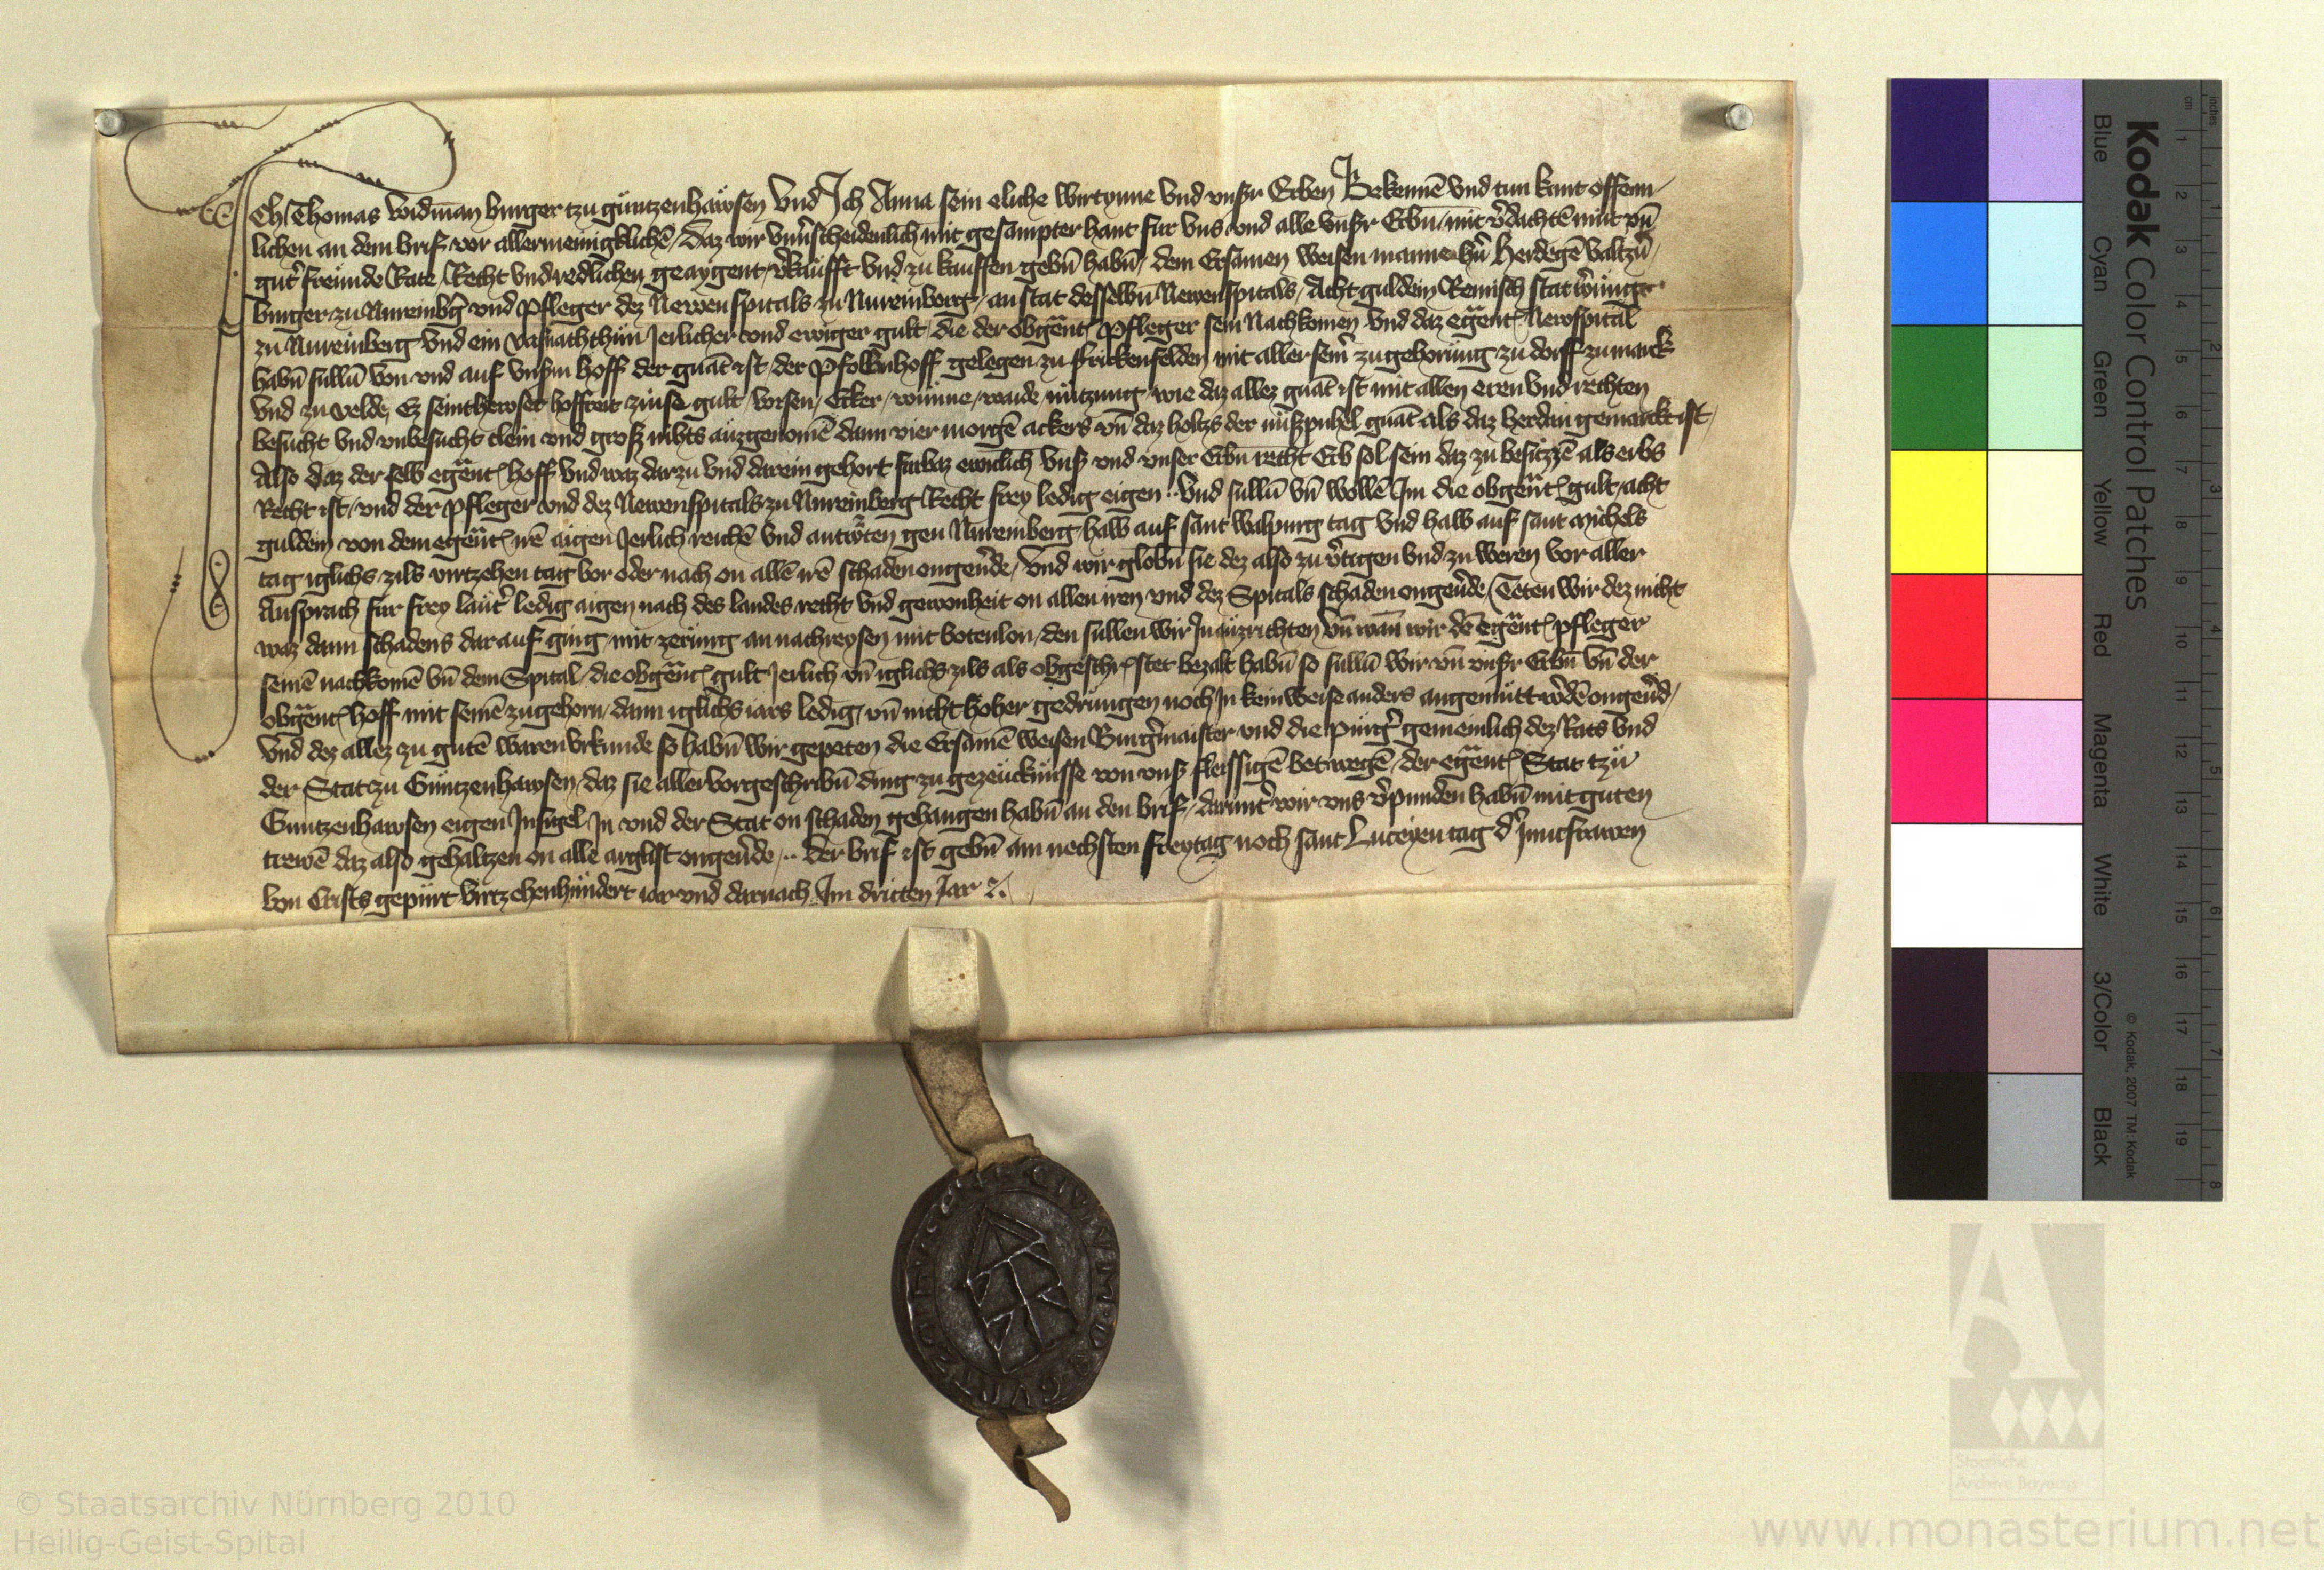 Ich Thomas Widman burger tzu guntzenhawsen Vnd Ich Anna sein eliche wirtynne Vnd vnßr Erben Bekennē Vnd tun kunt offenn
lichen an dem brif vor allermenigklichē / daz wir vnuˀscheidenlich mit gesampter hant fur vns vnd alle vnßr Erbn̄ / mit vˀdachtē mut vn̄
gutˀ freunde Rate / Recht vnd redlichen geaygent / vˀkaufft Vnd zu kauffen gebn̄ habn̄ / dem Ersamen weisen manne hˀn Herdegē valtznˀ /
burger zu Nurembˀg vnd Pfleger dez Newen spitals zu Nuremberg / an stat desselbn̄ Newenspitals / Acht guldein Reinisch statwˀunge
zu Nuremberg Vnd ein vasnachthun Jerlicher vnd ewiger gult / die der obgēnt Pfleger sein Nachkomen Vnd daz egēnt Newspital
habn̄ sulln̄ von vnd auf vnsm hoff der gnāt ist / der Pfolknhoff gelegen zu frickenfelden mit aller seinˀ zugehorung zu dorff zu marck
Vnd zu velde / Ez sein hewser hoffreit zinse gult / wisen / Ecker / wunne / waide / nutzung / wie daz allez gnāt ist mit allen eren Vnd rechten
besucht Vnd vnbesucht clein vnd groß nihts auzgenomē dann vier morgē ackers vn̄ daz holtzs der nußpuhel gnāt als daz berdan gemarckt ist /
Also daz der selb egēnt hoff Vnd waz darzu Vnd darein gehort furbaz ewiclich vnß vnd vnser Erbn recht Erb sol sein daz zu besitzzē als erbs
Recht ist / vnd der Pfleger vnd dez Newenspitals zu Nuremberg Recht frey ledig eigen .. Vnd sulln̄ vn̄ wollē Im die obgēnt gult / acht
guldein von dem egēnt irē aigen Jerlich reichē Vnd antwˀten gen Nuremberg / halb auf sant walpurg tag Vnd halb auf sant michels
tag iglichs zils virtzehen tag vor oder nach on allē irē schaden ongeuˀde / Vnd wir globn̄ sie dez also zu vˀtigen Vnd zu weren Vor aller
Ansprach fur frey lautˀ ledig aigen nach des landes recht Vnd gewonheit on allen iren vnd dez Spitals schaden ongeuˀde / Teten wir dez nicht
waz dann schadens darauf ging mit zerung an nachreysen mit botenlon / den sullen wir In auzrichten Vn̄ wan̄ wir dē Egēnt pfleger
seinē nachkomē Vn̄ dem Spital / die obgēnt gult Jerlich vn̄ iglichs zils als obgeschr stet bezalt habn̄ so sulln̄ wir vn̄ vnßr Erbn̄ Vn̄ der
obgēnt hoff mit seinē zugehorn / dann iglichs iars ledig / vn̄ nicht hoher gedrungen noch In kein weise anders angemutt wˀdē ongeuˀd /
Vnd dez allez zu gutē waren vrkunde so habn̄ wir gepeten die Ersamē weisen Burgˀmaister vnd die purgˀ gemeinlich dez Rats Vnd
der Stat zu Guntzenhawsen / daz sie aller vorgeschribn̄ ding zu gezeucknusse von vnß fleissigē betwegē / der egēnt Stat tzu
Guntzenhawsen eigen Insigel / In vnd der Stat on schaden gehangen habn̄ an den brif / daruntˀ wir vns vˀpunden habn̄ mit guten
trewē daz also gehaltzen on alle arglist ongeuˀde / .. der brif ist gebn̄ am nechsten freytag noch sant Luceyen tag dˀ Junckfrawen
Von Crists gepurt Virtzehenhundert iar vnd darnach Im dritten Jar
Kodak Color Control Patches
Blue Cyan Green Yellow Red Magenta White 3/Color Black
© Kodak, 2007 TM: Kodak
inches 1 2 3 4 5 6 7 8
cm 1 2 3 4 5 6 7 8 9 10 11 12 13 14 15 16 17 18 19
Staatliche
Archive Bayerns
© Staatsarchiv Nürnberg 2010
Heilig-Geist-Spital
www.monasterium.net